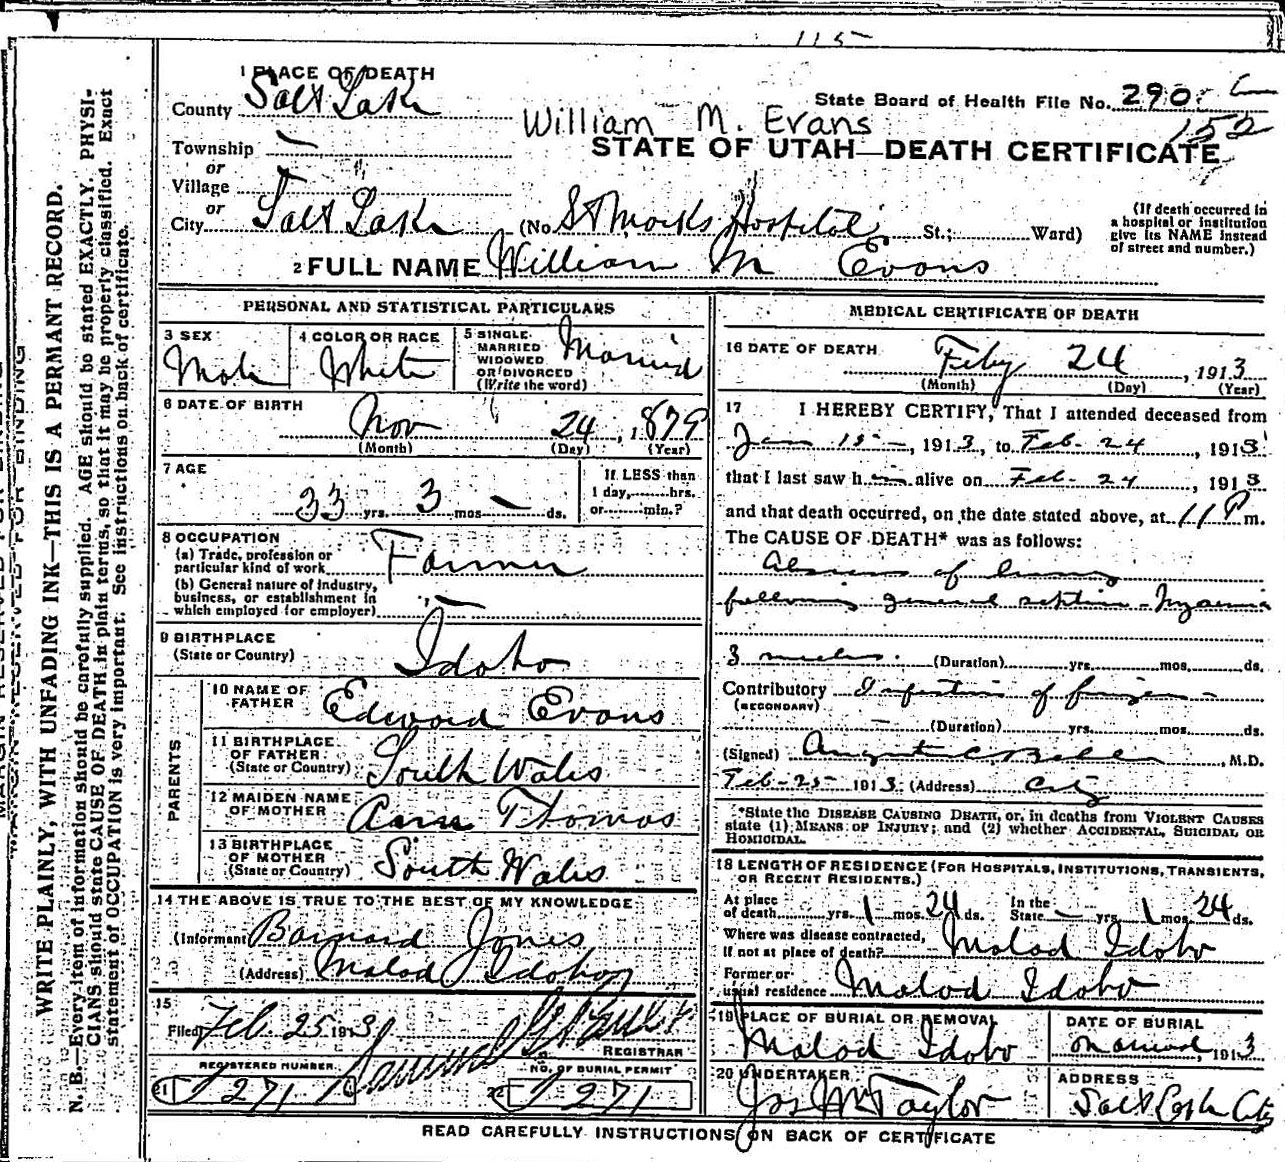 115
1 PLACE OF DEATH
County Salt Lake
State Board of Health File No. 290
152
William M. Evans
Township —
STATE OF UTAH—DEATH CERTIFICATE
or
Village
or
City Salt Lake (No. St Marks Hospital St.; Ward)
(If death occurred in a hospital or institution give its NAME instead of street and number.)
2 FULL NAME William M Evans
PERSONAL AND STATISTICAL PARTICULARS
3 SEX
Male
4 COLOR OR RACE
White
5 SINGLE MARRIED WIDOWED OR DIVORCED (Write the word)
Married
6 DATE OF BIRTH
Nov 24, 1879
(Month) (Day) (Year)
7 AGE
33 yrs. 3 mos — ds.
If LESS than 1 day, hrs. or min.?
8 OCCUPATION
(a) Trade, profession or particular kind of work Farmer
(b) General nature of industry, business, or establishment in which employed (or employer) —
9 BIRTHPLACE
(State or Country) Idaho
PARENTS
10 NAME OF FATHER Edward Evans
11 BIRTHPLACE OF FATHER (State or Country) South Wales
12 MAIDEN NAME OF MOTHER Ann Thomas
13 BIRTHPLACE OF MOTHER (State or Country) South Wales
14 THE ABOVE IS TRUE TO THE BEST OF MY KNOWLEDGE
(Informant Barnard Jones
(Address) Malad Idaho
15
Filed Feb. 25 1913
REGISTRAR
REGISTERED NUMBER
21 J 271
NO. OF BURIAL PERMIT
22 J 271
MEDICAL CERTIFICATE OF DEATH
16 DATE OF DEATH
Feby 24, 1913
(Month) (Day) (Year)
17 I HEREBY CERTIFY, That I attended deceased from
Jan 15 —, 1913, to Feb. 24, 1913
that I last saw h alive on Feb. 24, 1913
and that death occurred, on the date stated above, at 11 P m.
The CAUSE OF DEATH* was as follows:
Abscess of
following general
3 weeks. (Duration) yrs. mos. ds.
Contributory Infection of finger —
(SECONDARY)
— (Duration) yrs. mos. ds.
(Signed) M.D.
Feb-25- 1913 (Address) City
*State the DISEASE CAUSING DEATH, or, in deaths from VIOLENT CAUSES state (1) MEANS OF INJURY; and (2) whether ACCIDENTAL, SUICIDAL OR HOMICIDAL.
18 LENGTH OF RESIDENCE (FOR HOSPITALS, INSTITUTIONS, TRANSIENTS, OR RECENT RESIDENTS.)
At place of death yrs. 1 mos. 24 ds. In the State — yrs 1 mos 24 ds.
Where was disease contracted, If not at place of death? Malad Idaho
Former or usual residence Malad Idaho
19 PLACE OF BURIAL OR REMOVAL
Malad Idaho
DATE OF BURIAL
on arrival, 1913
20 UNDERTAKER
Jos Wm Taylor
ADDRESS
Salt Lake City
READ CAREFULLY INSTRUCTIONS ON BACK OF CERTIFICATE
MARGIN RESERVED FOR BINDING
WRITE PLAINLY, WITH UNFADING INK—THIS IS A PERMANT RECORD.
N. B.—Every item of information should be carefully supplied. AGE should be stated EXACTLY. PHYSI-
CIANS should state CAUSE OF DEATH in plain terms, so that it may be properly classified. Exact
statement of OCCUPATION is very important. See instructions on back of certificate.